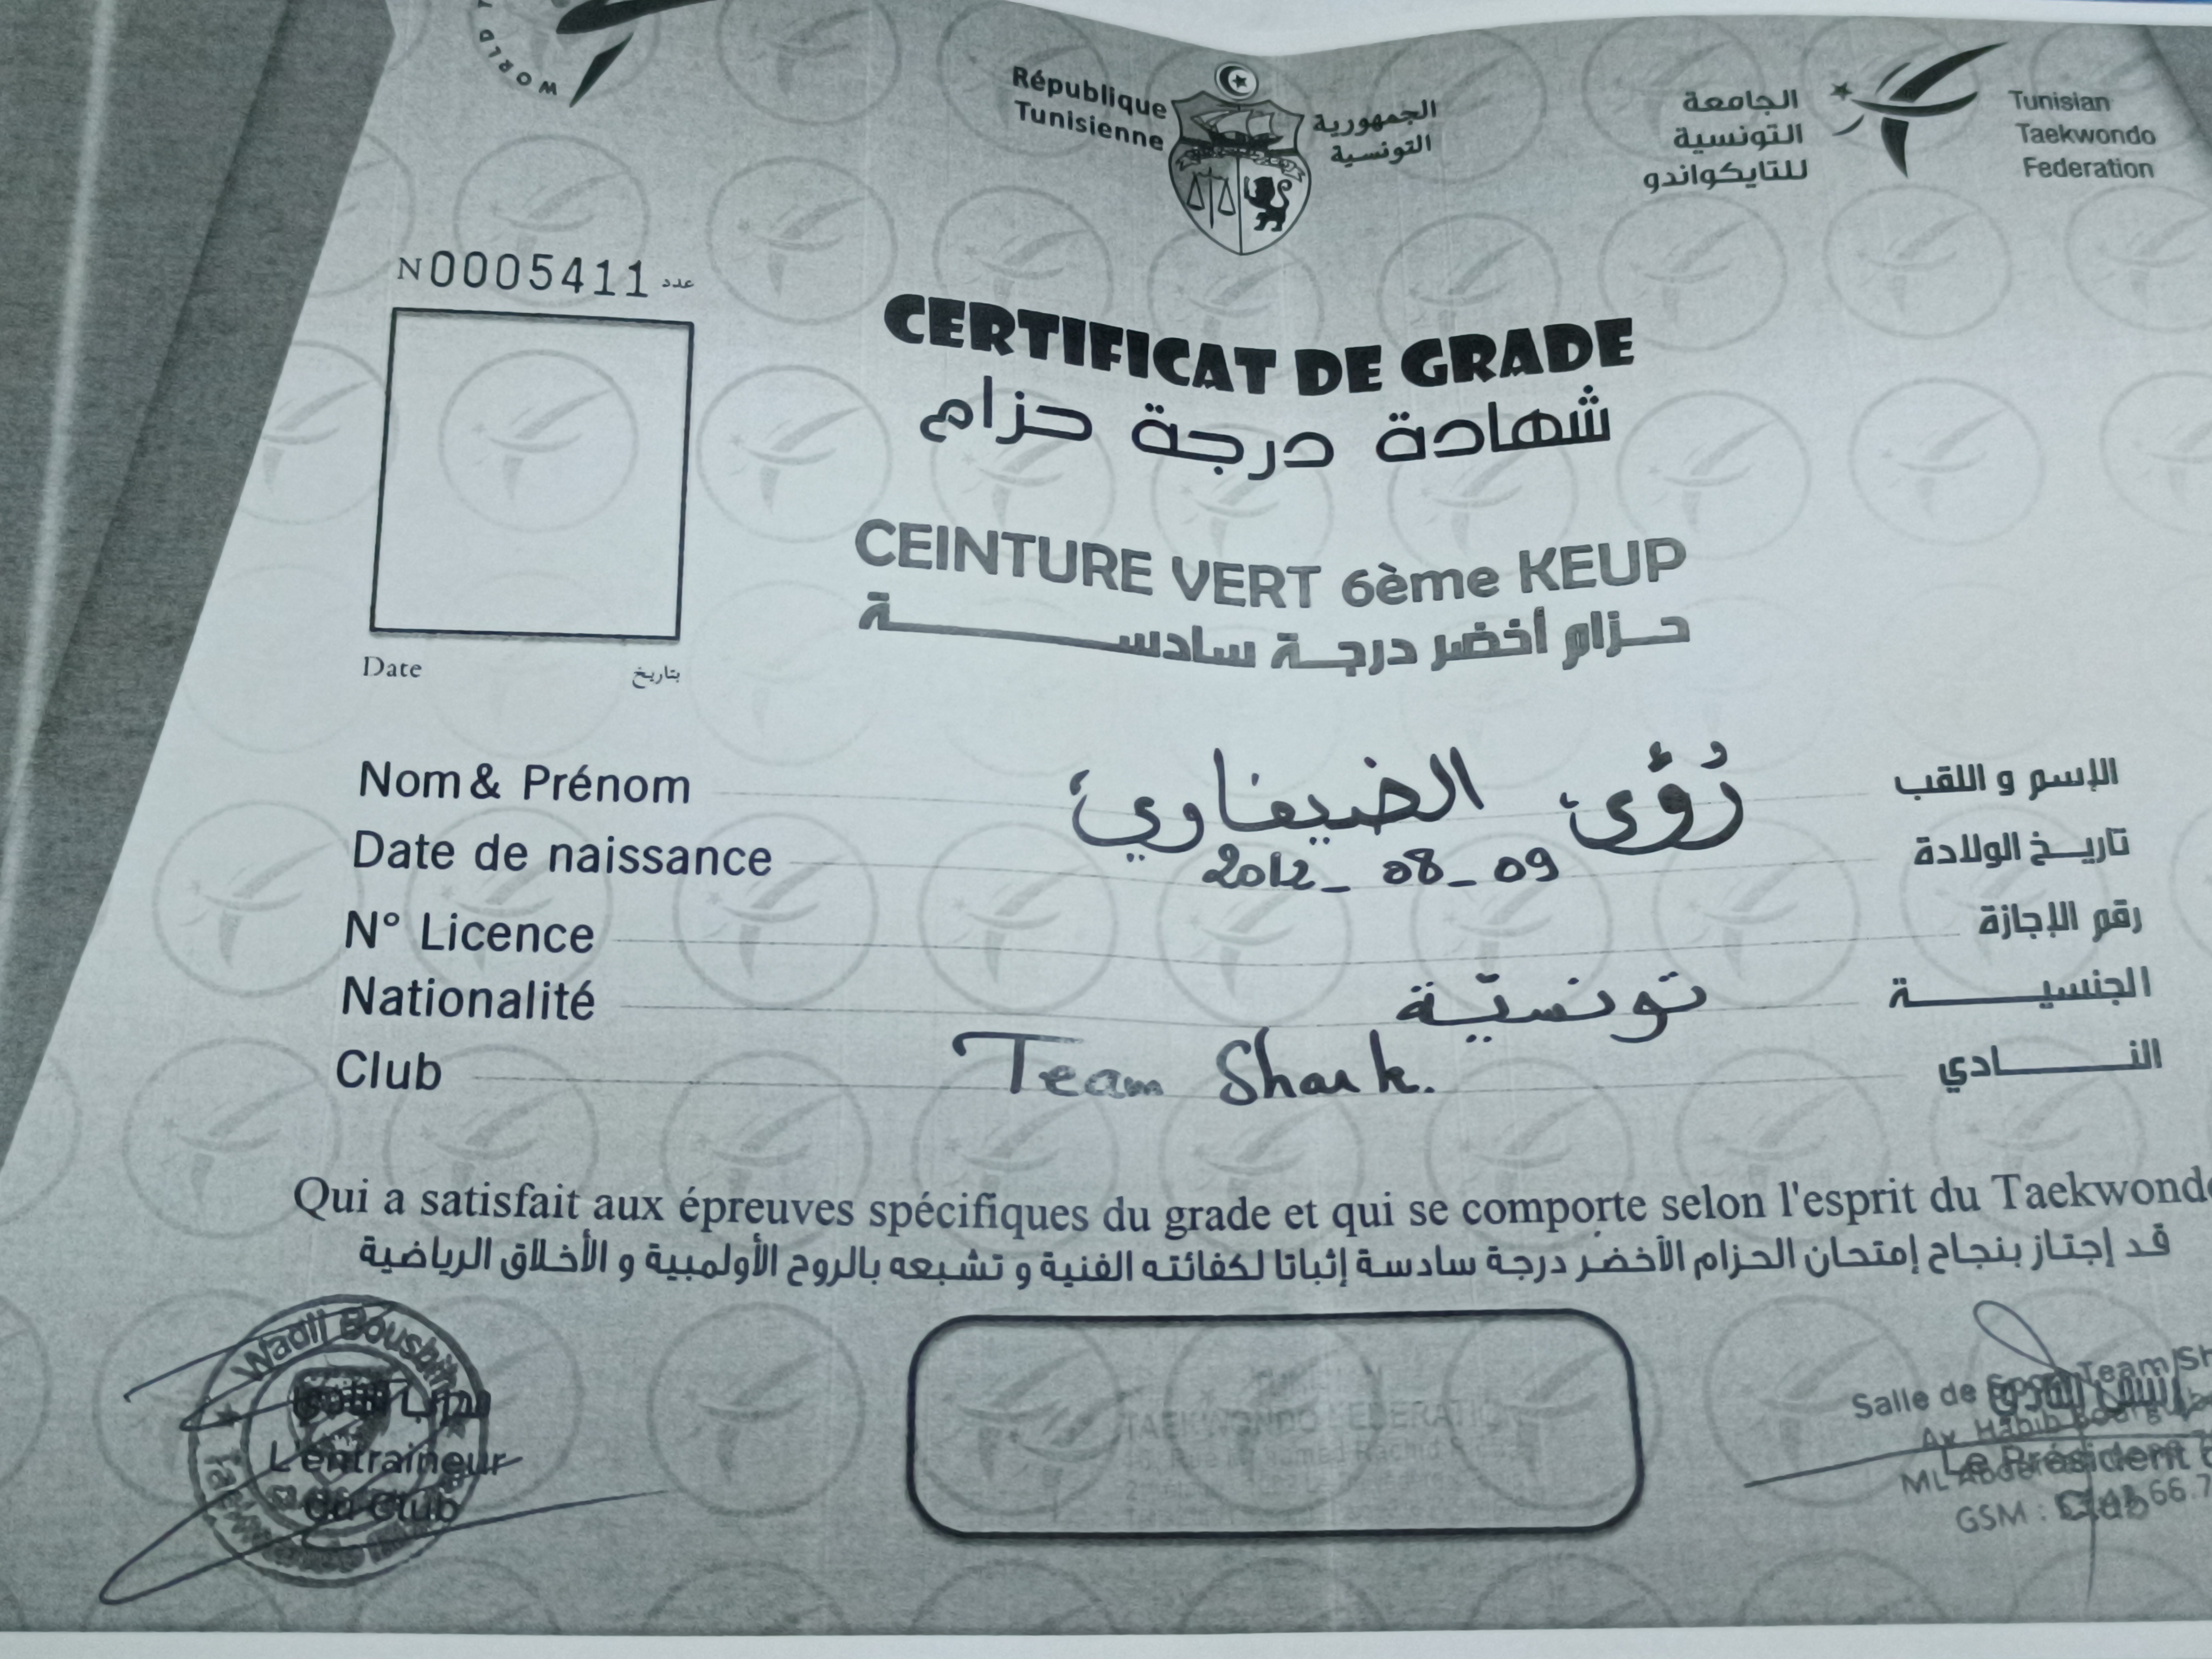 WORLD
République
Tunisienne
الجمهورية
التونسية
الجامعة
التونسية
للتايكواندو
Tunisian
Taekwondo
Federation
N 0005411 عدد
CERTIFICAT DE GRADE
شهادة درجة حزام
CEINTURE VERT 6ème KEUP
حـزام أخضر درجـة سادسـة
Date بتاريخ
Nom & Prénom رُؤى الضيفاوي الإسم و اللقب
Date de naissance 2012_08_09 تاريـخ الولادة
N° Licence رقم الإجازة
Nationalité تونسيّة الجنسيـة
Club Team Shark. النـادي
Qui a satisfait aux épreuves spécifiques du grade et qui se comporte selon l'esprit du Taekwondo
قد إجتاز بنجاح إمتحان الحزام الأخضر درجة سادسة إثباتا لكفائته الفنية و تشبعه بالروح الأولمبية و الأخلاق الرياضية
Wadii Bousbih
مدرب النادي
L'entraineur
du Club
TAEKWONDO FEDERATION
Salle de Sport Team Sh
رئيس النادي
Av. Habib Bourguiba
Le Président
Club
GSM :